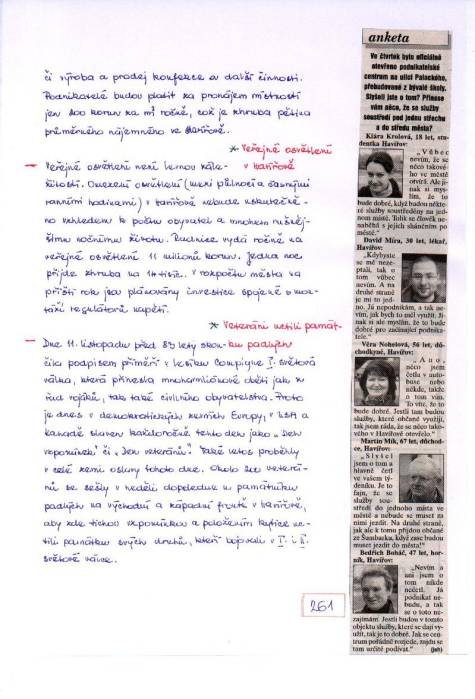 či výroba a prodej konfekce a další činnosti.
Podnikatelé budou platit za pronájem místností
jen 200 korun na m² ročně, což je zhruba pětina
průměrného nájemného ve Havířově.
* Veřejné osvětlení
v Havířově
– Veřejné osvětlení není levnou zále-
žitostí. Omezení osvětlení (mezi půlnocí a časnými
ranními hodinami) v Havířově nebude uskutečně-
no vzhledem k počtu obyvatel a mnohem rušněj-
šímu nočnímu životu. Radnice vydá ročně na
veřejné osvětlení 11 milionů korun. Jedna noc
přijde zhruba na 14 tisíc. V rozpočtu města na
příští rok jsou plánovány investice spojené s mon-
táží regulátorů napětí.
* Veteráni uctili památ-
ku padlých
– Dne 11. listopadu před 89 lety skon-
čila podpisem příměří v lesíku Compiegne I. světová
válka, která přinesla mnohamilionové oběti jak v
řad vojáků, tak také civilního obyvatelstva. Proto
je dnes v demokratických zemích Evropy, v USA a
Kanadě slaven každoročně tento den jako „Den
vzpomínek" či „Den veteránů". Také letos proběhly
v celé zemi oslavy tohoto dne. Okolo 200 veterá-
nů se sešly v neděli dopoledne u památníku
padlých na východní a západní frontě v Havířově,
aby zde tichou vzpomínkou a položením kytice uc-
tili památku svých druhů, kteří bojovali v I. i II.
světové válce.
261
anketa
Ve čtvrtek bylo oficiálně
otevřeno podnikatelské
centrum na ulici Palackého,
přebudované z bývalé školy.
Slyšeli jste o tom? Přinese
vám něco, že se služby
soustředí pod jednu střechu
a do středu města?
Klára Krolová, 18 let, stu-
dentka Havířov:
„Vůbec
nevím, že se
něco takové-
ho ve městě
otvírá. Ale ji-
nak si mys-
lím, že to
bude dobré, když budou někte-
ré služby soustředěny na jed-
nom místě. Tolik se člověk ne-
naběhá s jejich sháněním po
městě."
David Míra, 30 let, lékař,
Havířov:
„Kdybyste
se mě neze-
ptali, tak o
tom vůbec
nevím. A na
druhé straně
je mi to jed-
no. Já nepodnikám, a tak ne-
vím, jak bych to měl využít. Ji-
nak si ale myslím, že to bude
dobré pro začínající podnika-
tele."
Věra Nohelová, 56 let, dů-
chodkyně, Havířov:
„Ano,
něco jsem
četla v auto-
buse nebo
někde, takže
o tom vím.
To víte, že to
bude dobré. Jestli tam budou
služby, které občané využijí,
tak jsem ráda, že se něco tako-
vého v Havířově otevřelo."
Martin Mík, 67 let, důchod-
ce, Havířov:
„Slyšel
jsem o tom a
hlavně četl
ve vašem tý-
deníku. Je to
fajn, že se
služby sou-
středí do jednoho místa ve
městě a nebude se muset za
nimi jezdit. Na druhé straně,
jak ale k tomu přijdou občané
ze Šumbarku, když zase budou
muset jezdit do města?"
Bedřich Boháč, 47 let, hor-
ník, Havířov:
„Nevím a
ani jsem o
tom nikde
nečetl. Já
podnikat ne-
budu, a tak
se o toto ne-
zajímám. Jestli budou v tomto
objektu služby, které se dají vy-
užít, tak je to dobré. Jak se cen-
trum pořádně rozjede, zajdu se
tam určitě podívat." (jah)